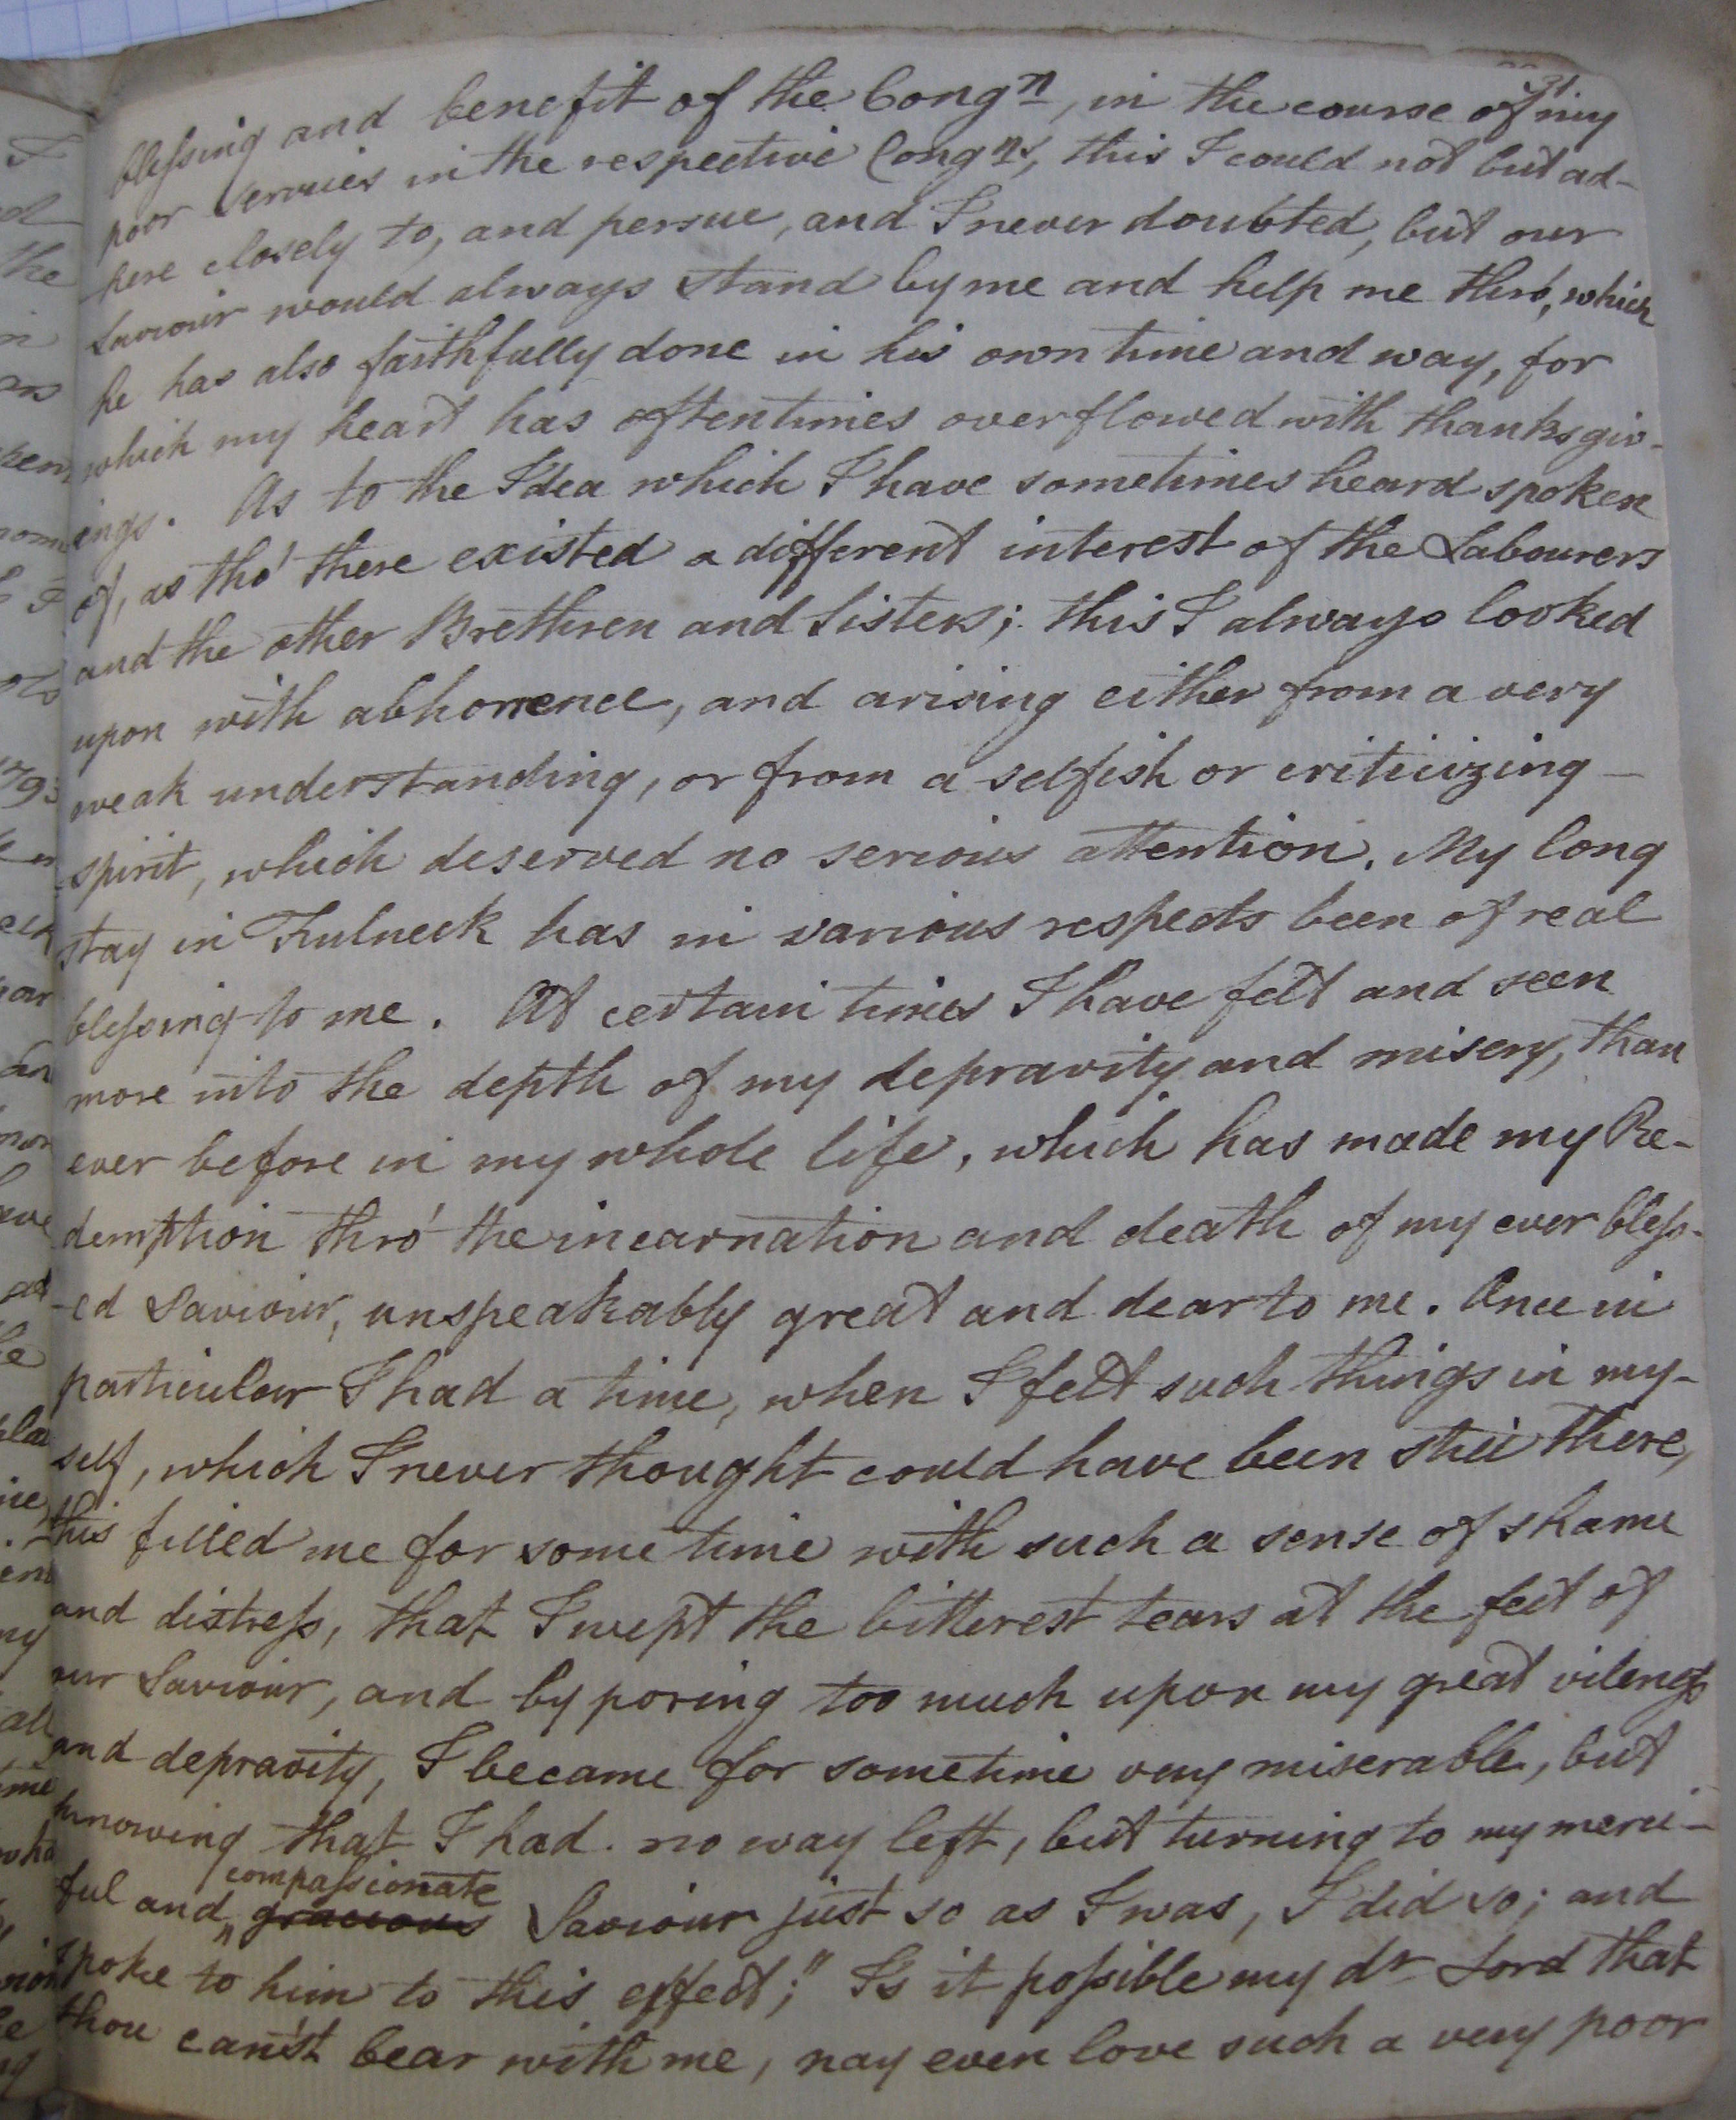 31
blessing and benefit of the Congn, in the course of my
poor Services in the respective Congns, this I could not but ad-
here closely to, and persue, and I never doubted, but our
Saviour would always stand by me and help me thro', which
he has also faithfully done in his own time and way, for
which my heart has oftentimes overflowed with thanksgiv-
ings. As to the Idea which I have sometimes heard spoken
of, as tho' there existed a different interest of the Labourers
and the other Brethren and Sisters; this I always looked
upon with abhorrence, and arising either from a very
weak understanding, or from a selfish or criticizing
spirit, which deserved no serious attention. My long
stay in Fulneck has in various respects been of real
blessing to me. At certain times I have felt and seen
more into the depth of my depravity and misery, than
ever before in my whole life, which has made my Re-
demption thro' the incarnation and death of my ever bless-
-ed Saviour, unspeakably great and dear to me. Once in
particular I had a time, when I felt such things in my-
self, which I never thought could have been still there,
this filled me for some time with such a sense of shame
and distress, that I wept the bitterest tears at the feet of
our Saviour, and by poring too much upon my great vileness
and depravity, I became for sometime very miserable, but
knowing that I had no way left, but turning to my merci-
compassionate
ful and gracious Saviour just so as I was, I did so; and
spoke to him to this effect; "Is it possible my dr Lord that
thou can'st bear with me, nay even love such a very poor